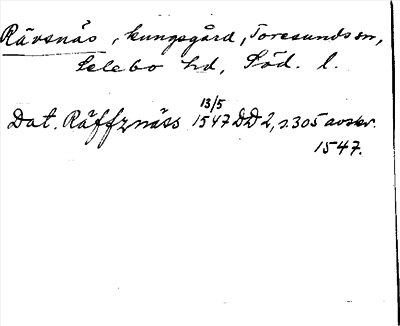 Rävsnäs, kungsgård, Toresunds sn,
Selebo hd, Söd. l.
Dat. Räffznäss 13/5 1547 DD 2, s. 305 avskr.
1547.